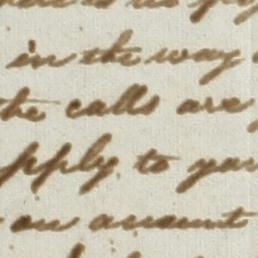 in the way
the calls are
apply to you
on amount